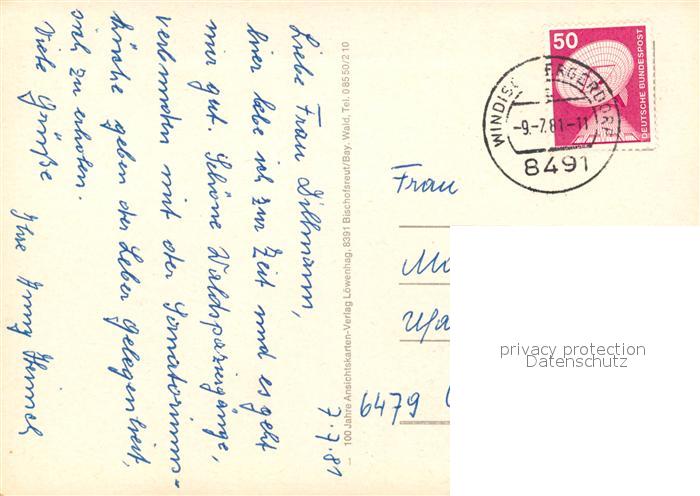 7.7.81
Liebe Frau Dillmann,
hier lebe ich zur Zeit und es geht
mir gut. Schöne Waldspaziergänge,
verbunden mit der Sanatoriums-
küche geben der Leber Gelegenheit,
sich zu erholen.
Viele Grüße
Ihre Hemel
100 Jahre Ansichtskarten-Verlag Löwenhag, 8391 Bischofsreut/Bay. Wald, Tel. 08550/210
50
DEUTSCHE BUNDESPOST
-9.-7.81-11
8491
Frau
6479
privacy protection
Datenschutz